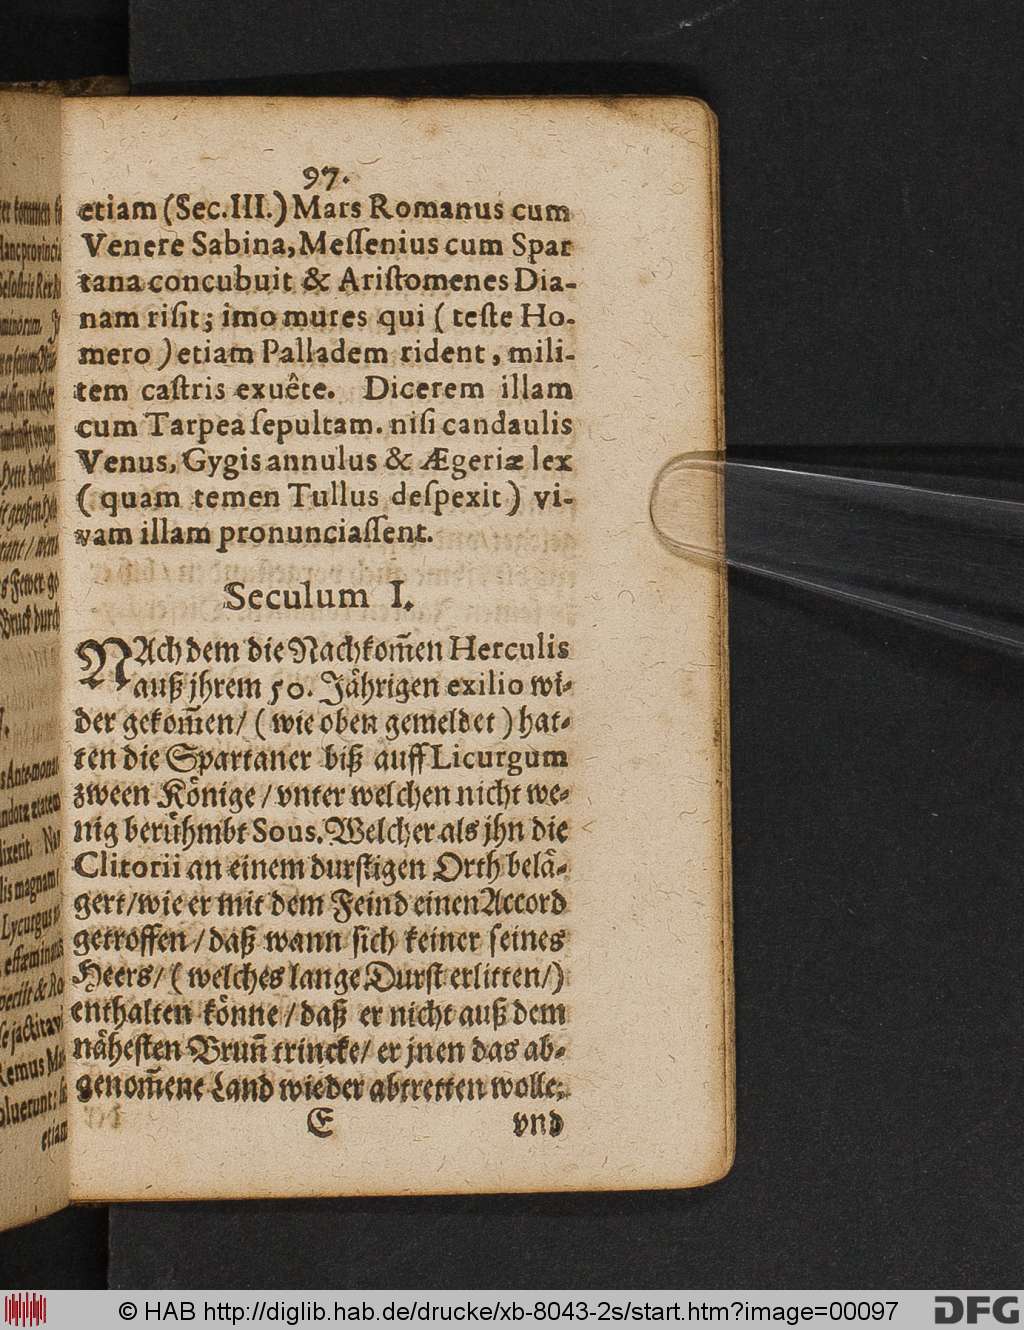 97.
etiam (Sec. III.) Mars Romanus cum
Venere Sabina, Meſſenius cum Spar
tana concubuit & Ariſtomenes Dia-
nam riſit; imo mures qui ( teſte Ho-
mero ) etiam Palladem rident, mili-
tem caſtris exuête. Dicerem illam
cum Tarpea ſepultam. niſi candaulis
Venus, Gygis annulus & Ægeriæ lex
( quam temen Tullus deſpexit ) vi-
vam illam pronunciaſſent.
Seculum I.
NAch dem die Nachkom̃en Herculis
auß jhrem 50. Jährigen exilio wi-
der gekom̃en/ ( wie oben gemeldet ) hat-
ten die Spartaner biß auff Licurgum
zween Könige / vnter welchen nicht we-
nig berühmbt Sous. Welcher als jhn die
Clitorii an einem durſtigen Orth belä-
gert/ wie er mit dem Feind einen Accord
getroffen / daß wann ſich keiner ſeines
Heers/ ( welches lange Durſt erlitten/)
enthalten könne / daß er nicht auß dem
näheſten Brun̄ trincke/ er jnen das ab-
genom̃ene Land wieder abtretten wolle;
E vnd
© HAB http://diglib.hab.de/drucke/xb-8043-2s/start.htm?image=00097 DFG